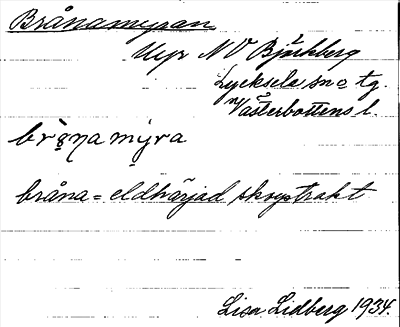 Brånamyran
Myr NV Björkberg
Lycksele sn o tg.
Västerbottens l.
brǫ̀na mýra
bråna = eldhärjad skogstrakt
Lisa Lidberg 1934.